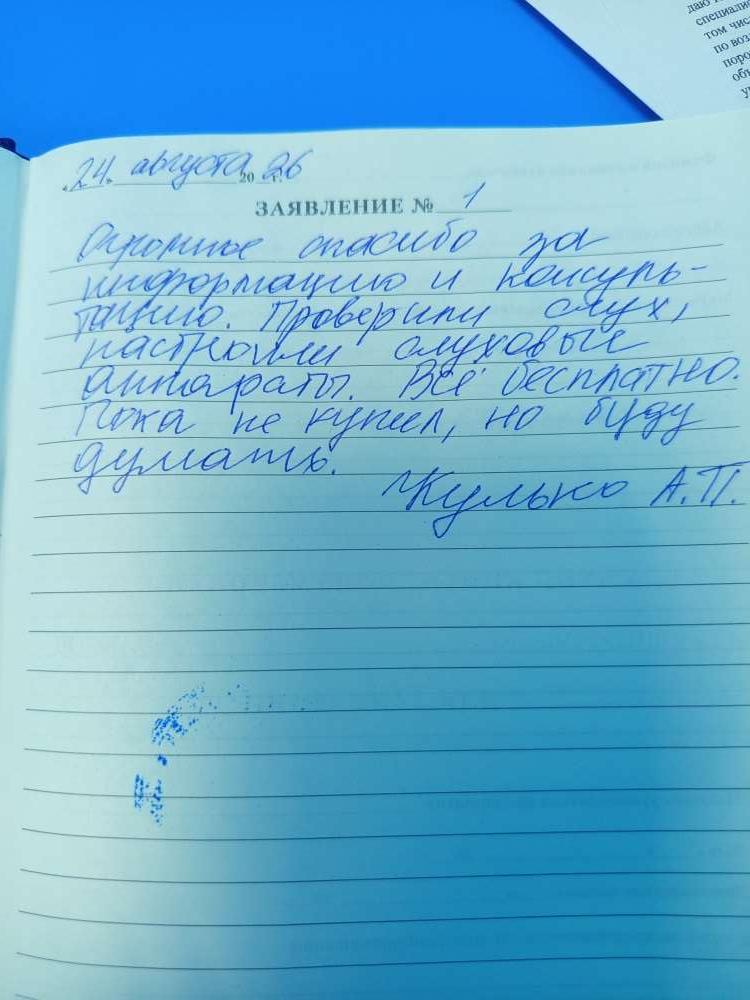 даю
специалис
том чис
по воз
поро
объ
« 24 » августа 20 26 г.
ЗАЯВЛЕНИЕ № 1
Огромное спасибо за
информацию и консуль-
тацию. Проверили слух,
настроили слуховые
аппараты. Всё бесплатно.
Пока не купил, но буду
думать.
Жулько А.П.